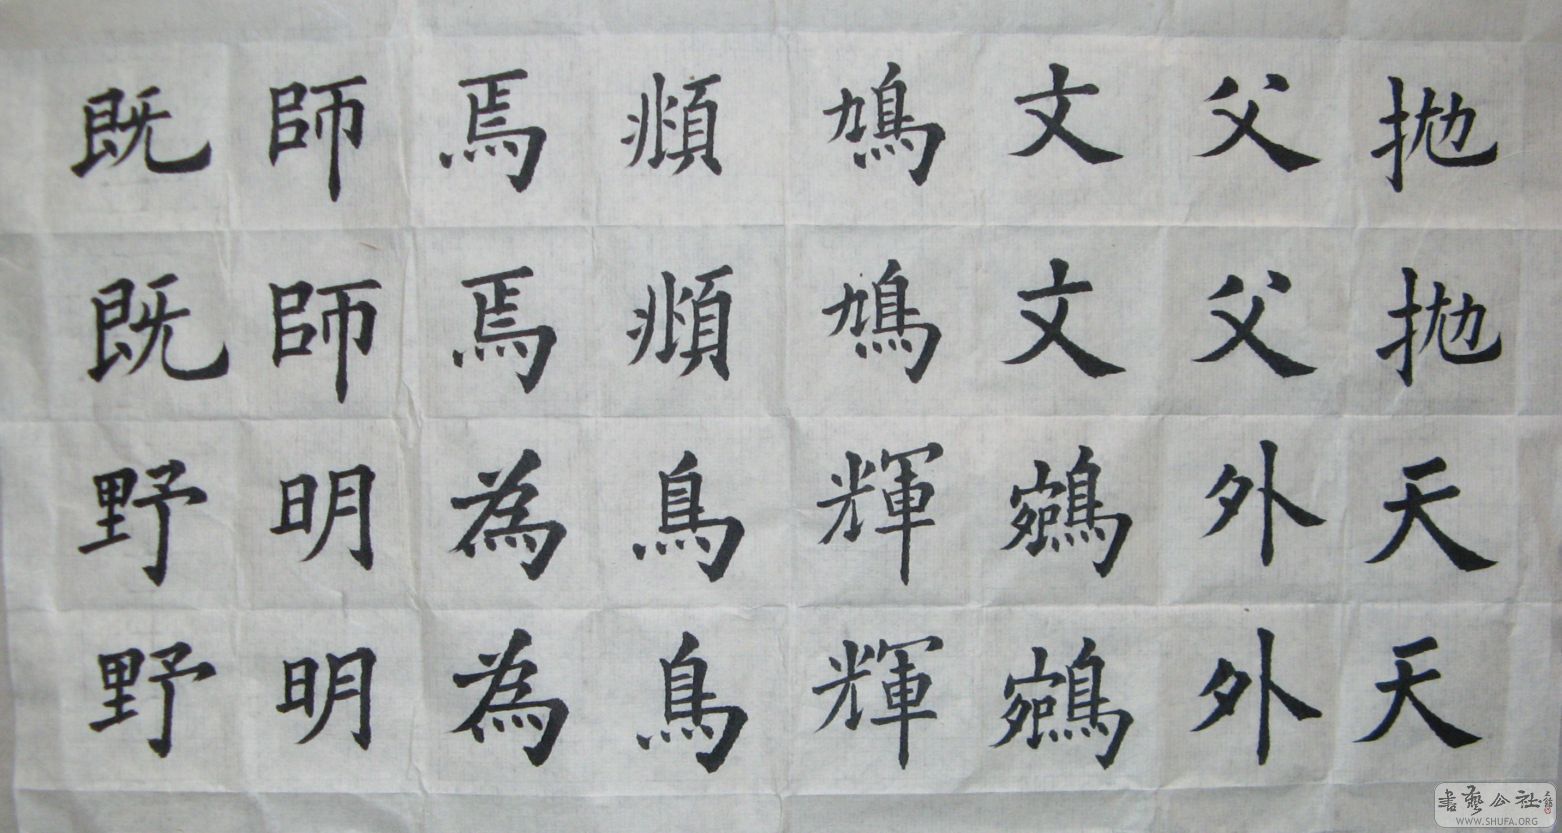 抛抛天天
父父外外
文文鵷鵷
鳩鳩輝輝
頫頫鳥鳥
焉焉為為
師師明明
既既野野
書藝公社
WWW.SHUFA.ORG